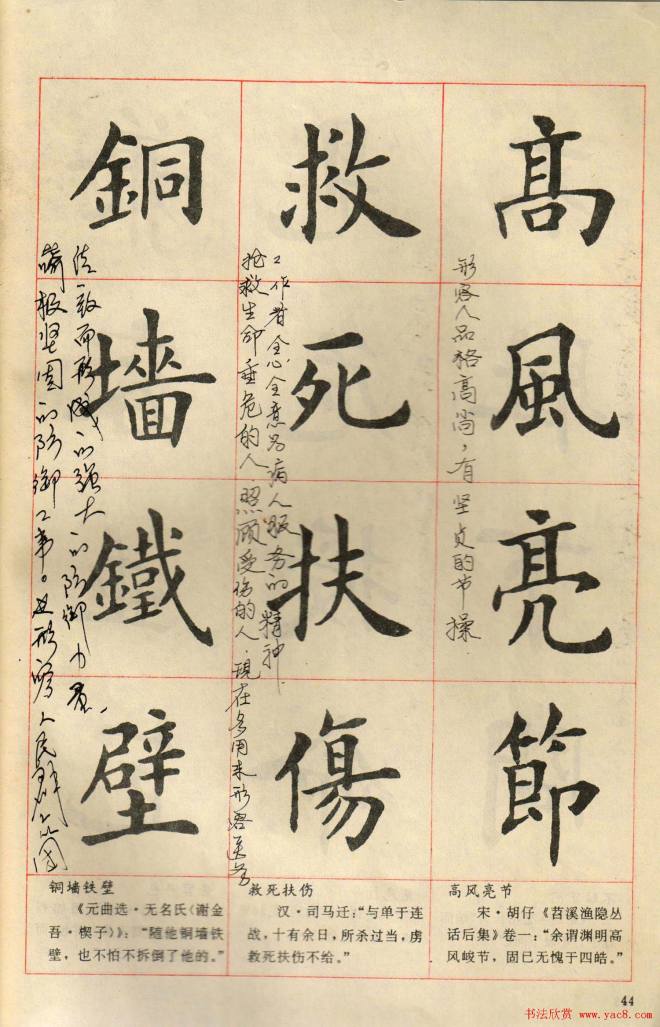 高風亮節
形容人品格高尚，有坚贞的节操.
救死扶傷
抢救生命垂危的人.照顾受伤的人.现在多用来形容医务
工作者全心全意为病人服务的精神.
銅墻鐵壁
坚固的防御工事。也形容人民群众
一致而形成的强大的防御力量.
高风亮节
宋·胡仔《苕溪渔隐丛
话后集》卷一：“余谓渊明高
风峻节，固已无愧于四皓。”
救死扶伤
汉·司马迁：“与单于连
战，十有余日，所杀过当，虏
救死扶伤不给。”
铜墙铁壁
《元曲选·无名氏（谢金
吾·楔子）》：“随他铜墙铁
壁，也不怕不拆倒了他的。”
44
书法欣赏 www.yac8.com